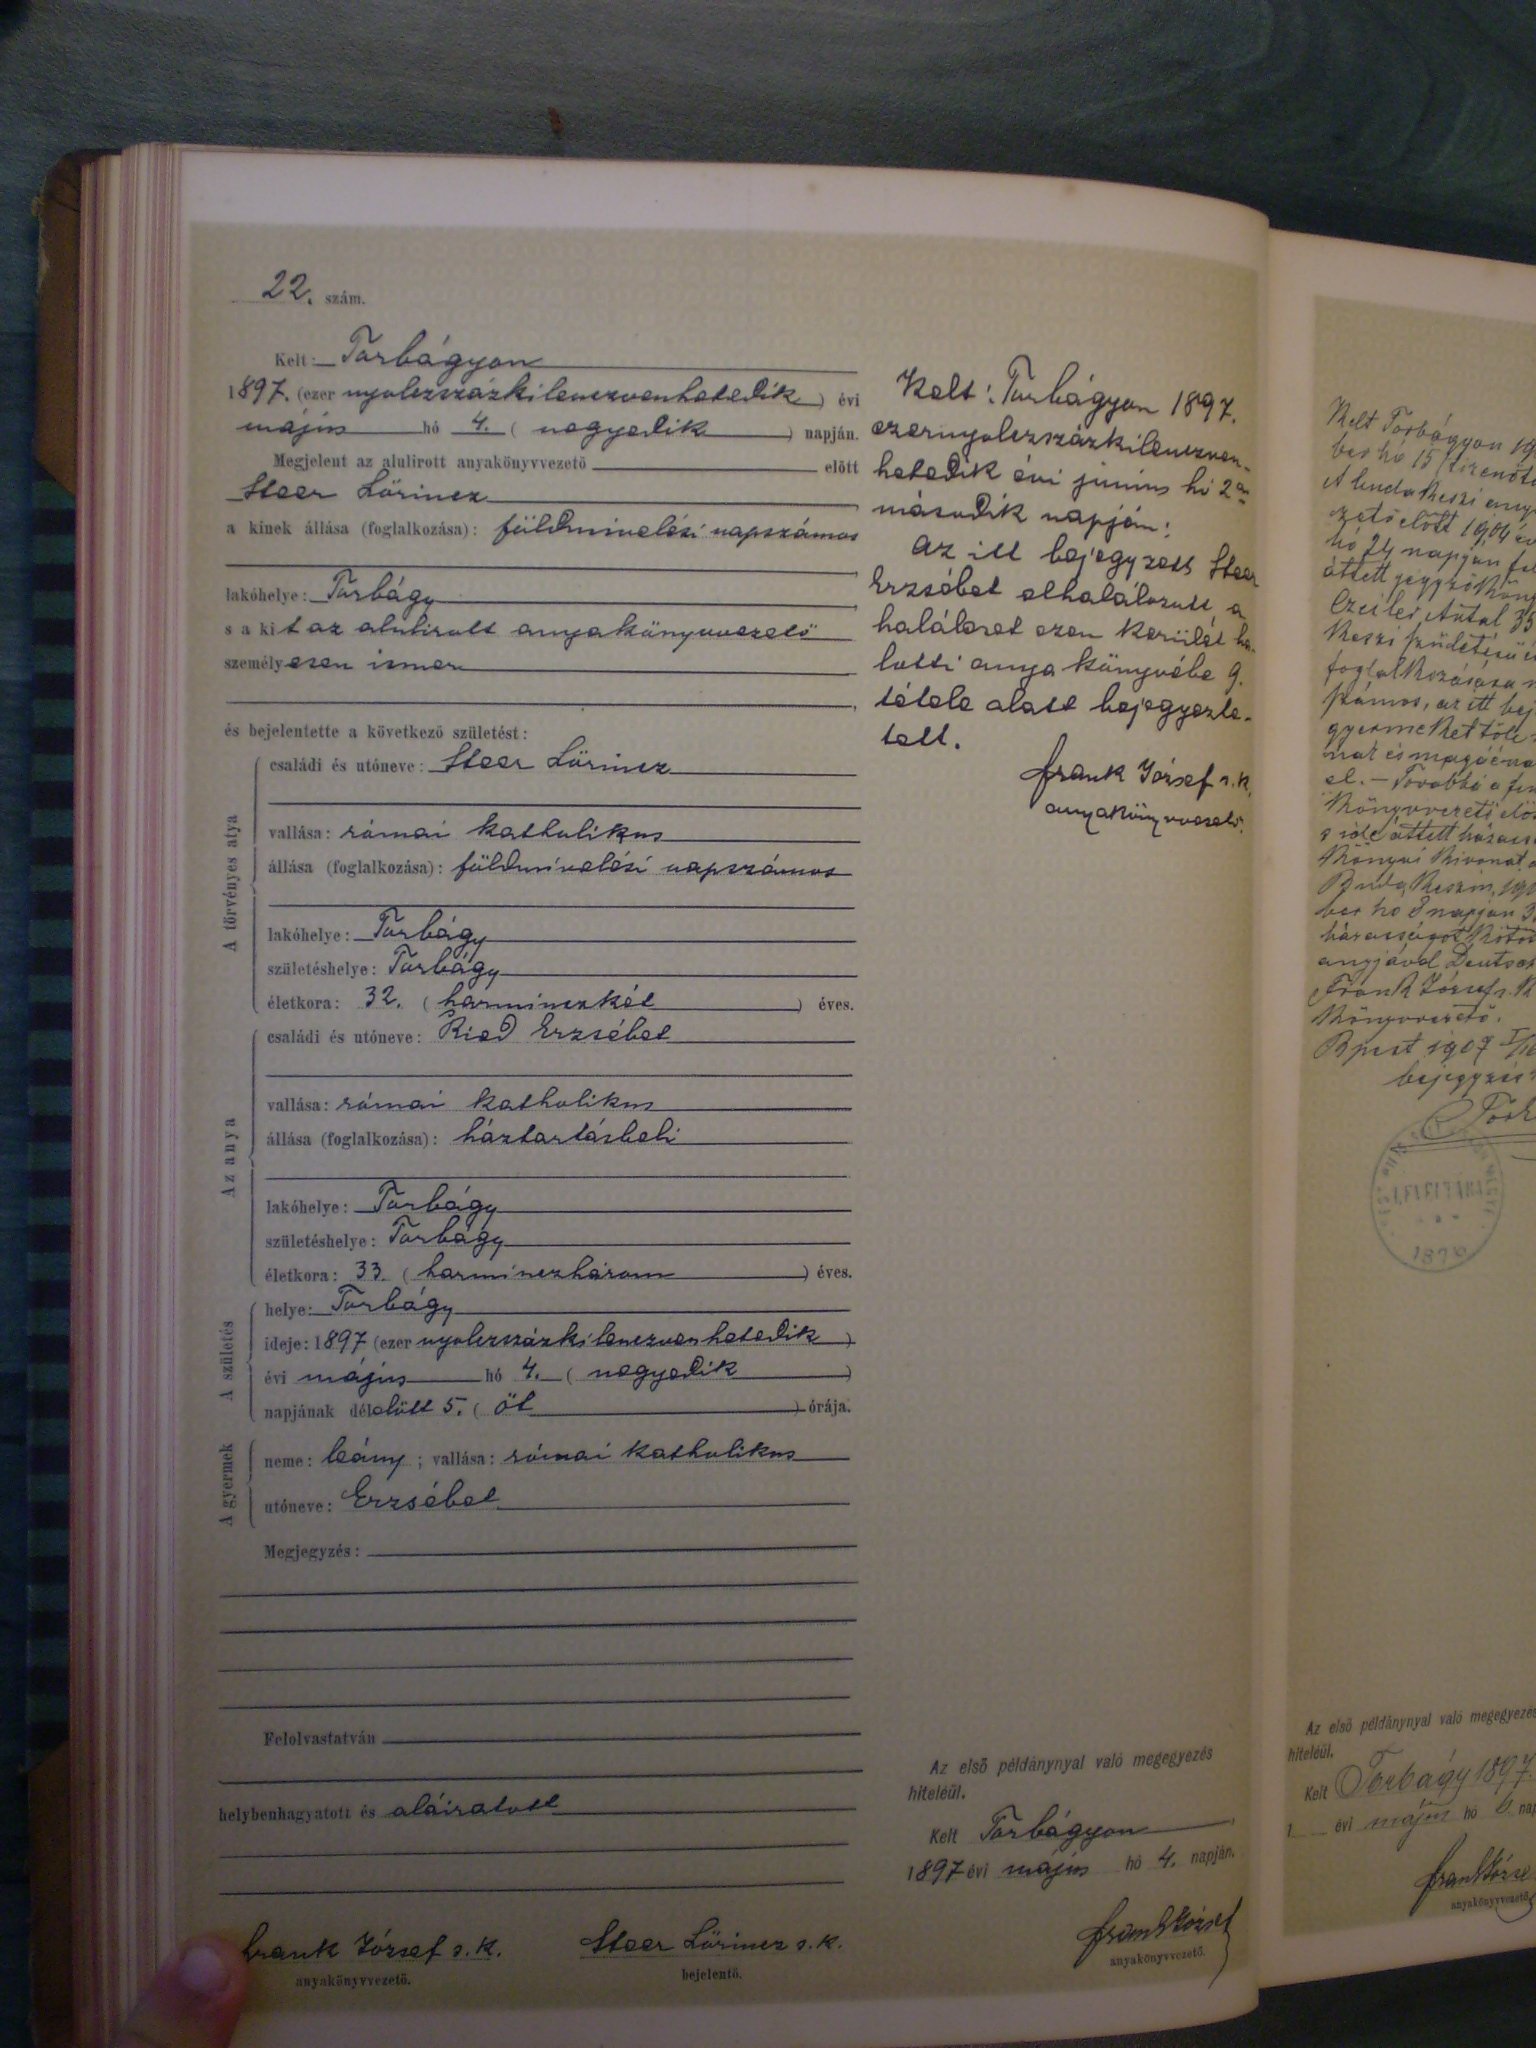 22. szám.
Kelt: Torbágyon
1897. (ezer nyolczszázkilenczvenhetedik) évi
május hó 4. (negyedik) napján.
Megjelent az alulirott anyakönyvvezető előtt
Steer Lőrincz
a kinek állása (foglalkozása): földmivelési napszámos
lakóhelye: Torbágy
s a kit az alulirott anyakönyvvezető
személyesen ismer
és bejelentette a következő születést:
A törvényes atya
családi és utóneve: Steer Lőrincz
vallása: római katholikus
állása (foglalkozása): földmivelési napszámos
lakóhelye: Torbágy
születéshelye: Torbágy
életkora: 32. (harminczkét) éves.
Az anya
családi és utóneve: Ried Erzsébet
vallása: római katholikus
állása (foglalkozása): háztartásbeli
lakóhelye: Torbágy
születéshelye: Torbágy
életkora: 33. (harminczhárom) éves.
A születés
helye: Torbágy
ideje: 1897 (ezer nyolczszázkilenczvenhetedik)
évi május hó 4. (negyedik)
napjának délelőtt 5. (öt) órája.
A gyermek
neme: leány; vallása: római katholikus
utóneve: Erzsébet
Megjegyzés:
Felolvastatván
helybenhagyatott és aláiratott
Frank József s. k.
anyakönyvvezető.
Steer Lőrincz s. k.
bejelentő.
Kelt: Torbágyon 1897.
ezernyolczszázkilenczven-
hetedik évi június hó 2án
második napján:
Az itt bejegyzett Steer
Erzsébet elhalálozott a
haláleset ezen kerület ha-
lotti anyakönyvébe 9.
tétele alatt bejegyezte-
tett.
Frank József s. k.
anyakönyvvezető.
Az első példánynyal való megegyezés
hiteléül.
Kelt Torbágyon
1897 évi május hó 4. napján.
Frank József
anyakönyvvezető.
Kelt Torbágyon
ber hó 15
A budakeszi
zető előtt 1904 év
hó 24 napján
Czeiler Antal 35
Keszi születésű
az itt bej
gyermeket
el. – Továbbá a
Könyvvezető
Könyvi Kivonat
Buda Keszin
ber hó 8 napján
házasságot
anyjával Deutsch
Frank József s. k.
Könyvvezető.
Bpest 1907
bejegyzés
LEVÉLTÁRA
1876
Az első példánynyal való megegyezés
hiteléül.
Kelt Torbágy 1897.
1 évi május hó 6 nap
Frank József
anyakönyvvezető